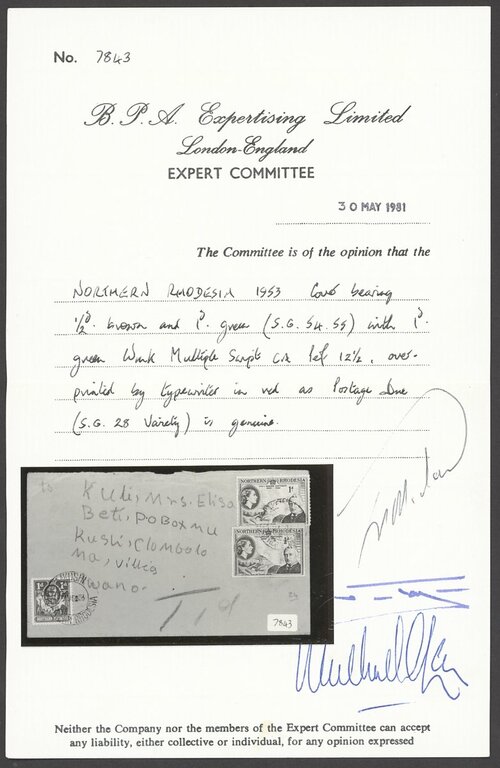 No. 7843
B. P. A. Expertising Limited
London-England
EXPERT COMMITTEE
30 MAY 1981
The Committee is of the opinion that the
NORTHERN RHODESIA 1953 Cover bearing
½d. brown and 1d. green (S.G. 54. 55) with 1d.
green Wmk Multiple Script C.A. Perf 12½, over-
printed by typewriter in red as Postage Due
(S.G. 28 Variety) is genuine.
to
Kuli, Mrs. Elisa
Beti, PO Box mu
Kushi, Clombolo
Ma, villeg
Kwano.
T 1d
NORTHERN RHODESIA
NORTHERN RHODESIA
7843
Neither the Company nor the members of the Expert Committee can accept
any liability, either collective or individual, for any opinion expressed